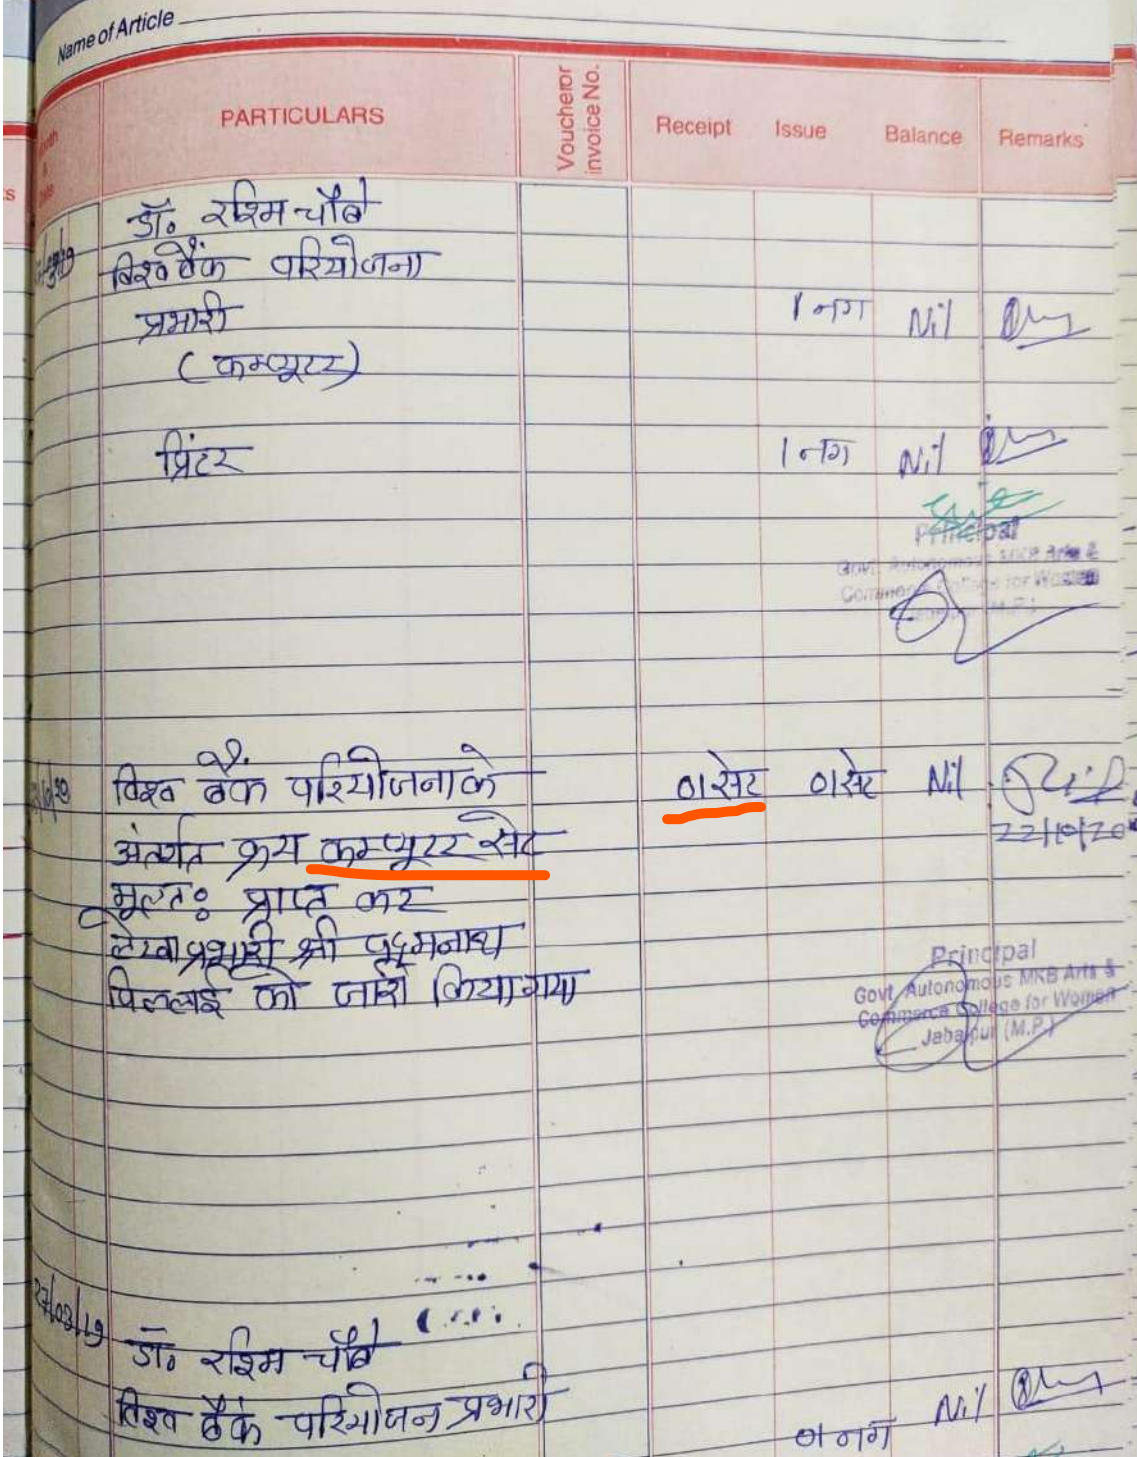 Name of Article
PARTICULARS
Voucher or invoice No.
Receipt
Issue
Balance
Remarks
डॉ. रश्मि चौबे
विश्व बैंक परियोजना
प्रभारी
1 नग Nil
(कम्प्यूटर)
प्रिंटर 1 नग Nil
Principal
Govt. Autonomous MKB Arts &
Commerce College for Women
(M.P.)
विश्व बैंक परियोजना के 01 सेट 01 सेट Nil
अंतर्गत क्रय कम्प्यूटर सेट 22/10/20
मूलतः प्राप्त कर
लेखा प्रभारी श्री पद्मनाथ
पिल्लई को जारी किया गया
Principal
Govt. Autonomous MKB Arts &
Commerce College for Women
Jabalpur (M.P.)
27/02/19
डॉ. रश्मि चौबे
विश्व बैंक परियोजन प्रभारी
01 नग Nil